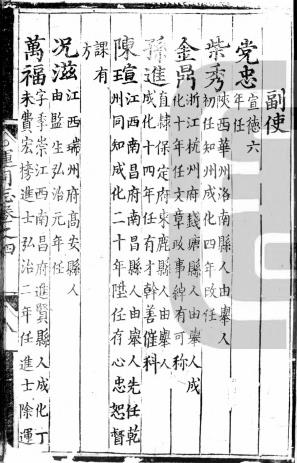 副使
党忠宣德六
年任
柴秀陝西華州洛南縣人由舉人
初任知州成化四年改任
金鼎浙江杭州府錢塘縣人由舉人成
化十年任文章政事綽有可称
孫進直隸保定府束鹿縣人由舉人
成化十四年任有才幹善催科
陳瑄江西南昌府南昌縣人由舉人先任乾
州同知成化二十年陞任存心忠恕督
課有
方
况滋江西瑞州府高安縣人
由監生弘治元年任
萬福字季崇江西南昌府進賢縣人成化丁
未費宏榜進士弘治二年任進士除運